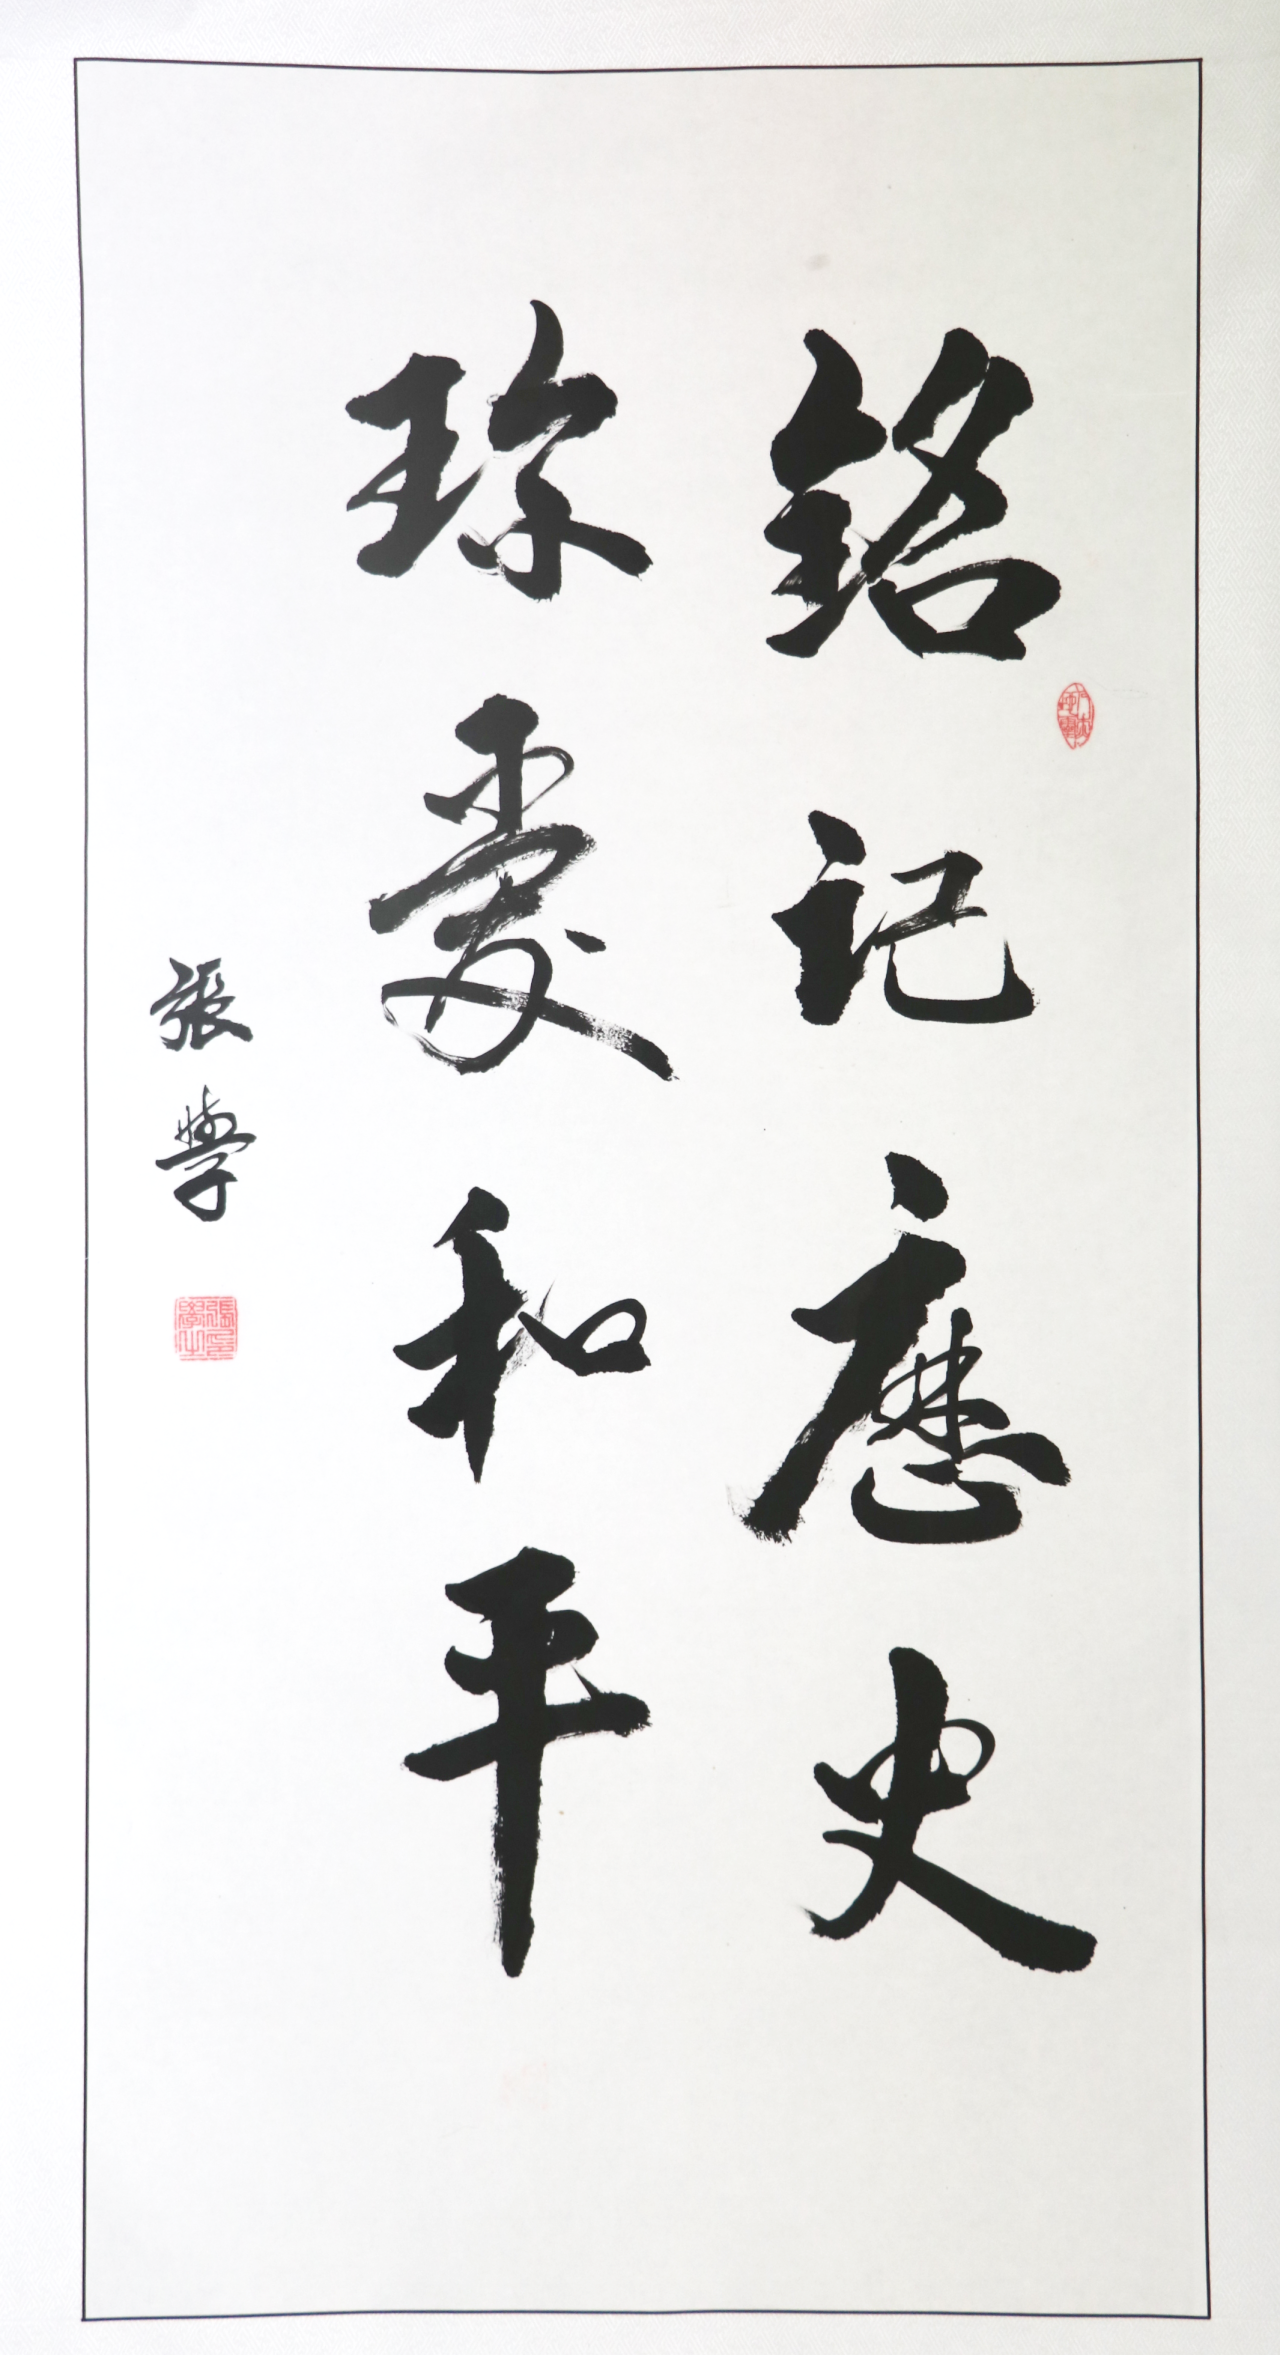 铭记歷史
珍愛和平
張學